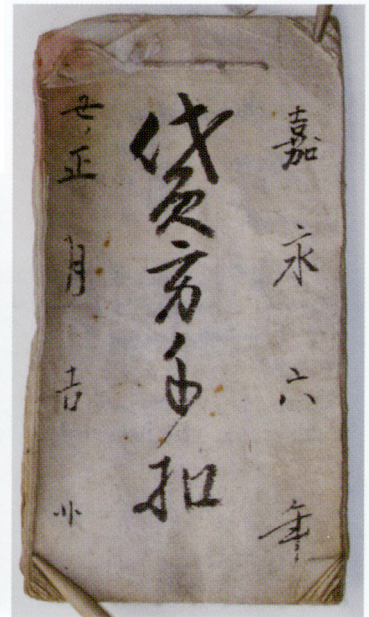 嘉永六年
貸方手扣
丑正月吉日